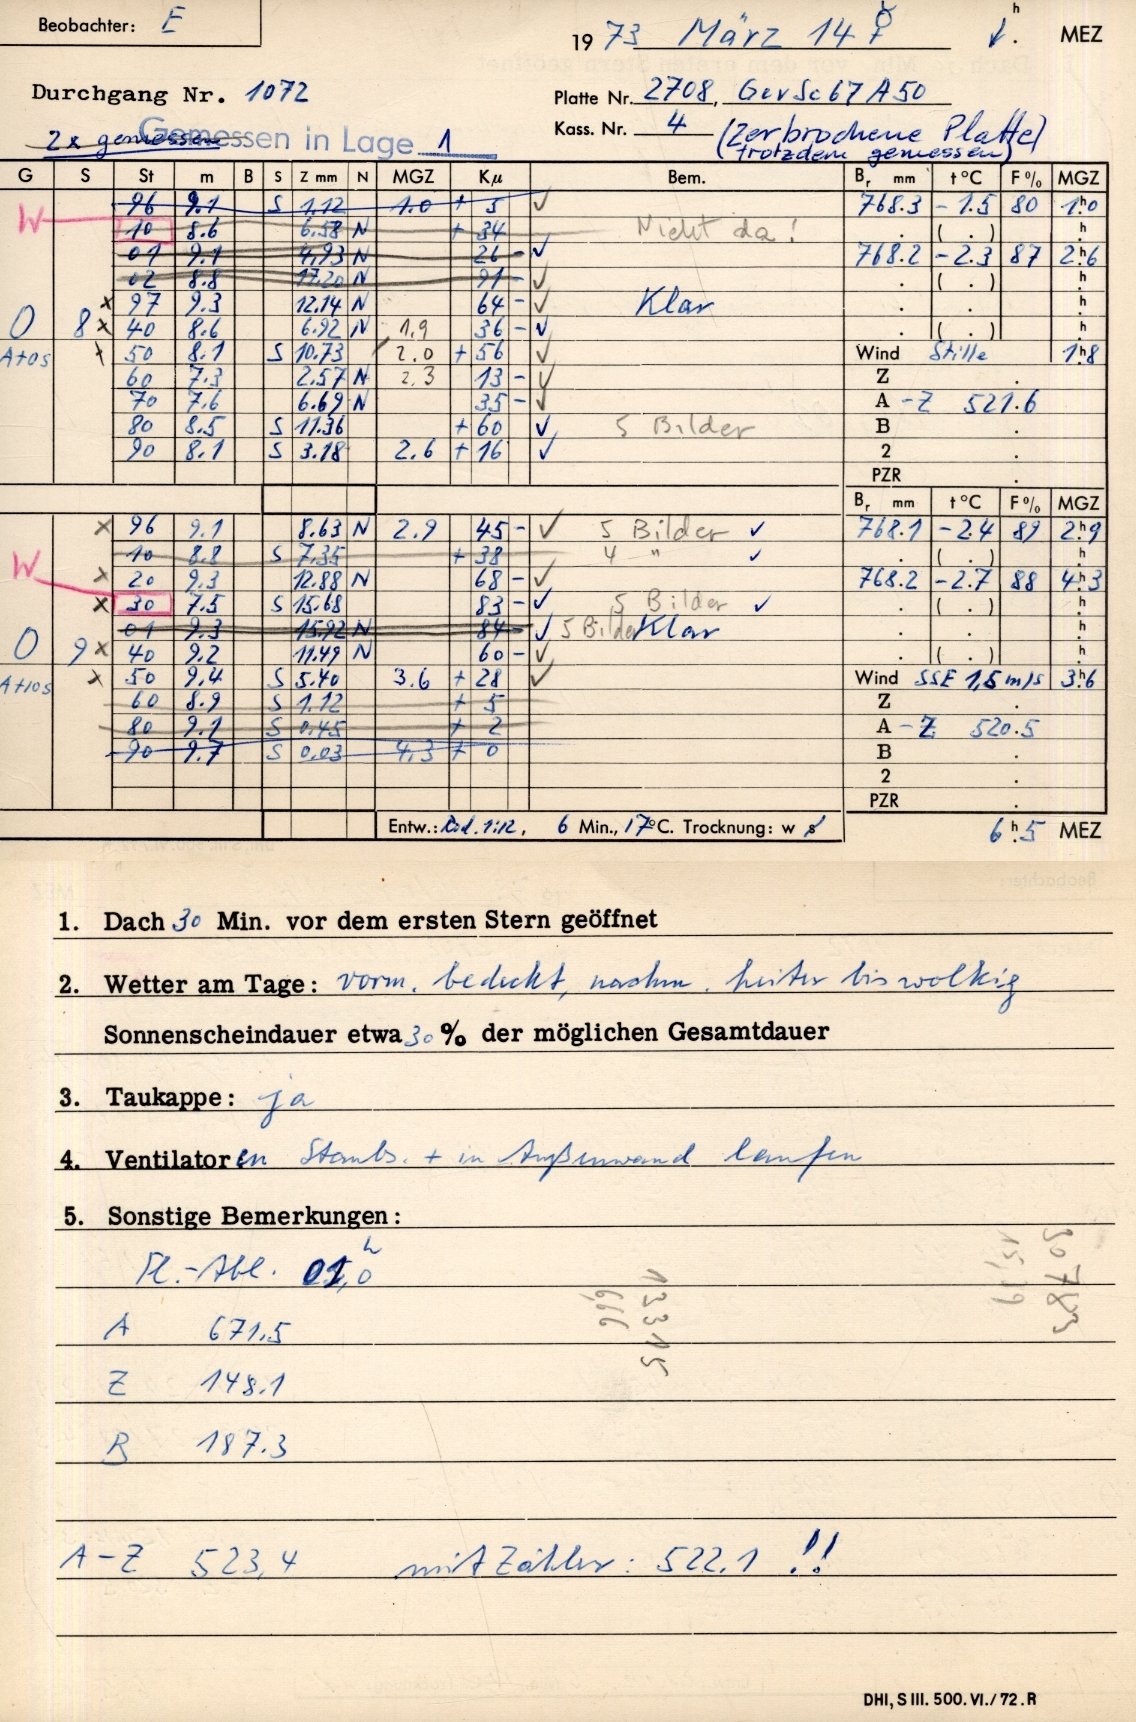 Beobachter: E
1973 März 14 ☿ 1h. MEZ
Durchgang Nr. 1072
Platte Nr. 2708, GevSc67A50
2x gemessen Gemessen in Lage 1
Kass. Nr. 4 (Zerbrochene Platte)
(trotzdem gemessen)
G S St m B S Z mm N MGZ Kµ Bem. Br mm t °C F % MGZ
96 9.1 S 1.12 1.0 + 5 ✓ 768.3 - 1.5 80 1h0
W 10 8.6 6.58 N + 34 Nicht da! . ( . ) h
01 9.1 4.93 N 26 - ✓ 768.2 - 2.3 87 2h6
02 8.8 17.20 N 91 - ✓ . ( . ) h
x 97 9.3 12.14 N 64 - ✓ Klar . . h
O 8 x 40 8.6 6.92 N 1.9 36 - ✓ . ( . ) h
Atos x 50 8.1 S 10.73 2.0 + 56 ✓ Wind Stille 1h8
60 7.3 2.57 N 2.3 13 - ✓ Z .
70 7.6 6.69 N 35 - ✓ A - Z 521.6
80 8.5 S 11.36 + 60 ✓ 5 Bilder B .
90 8.1 S 3.18 2.6 + 16 ✓ 2 .
PZR .
Br mm t °C F % MGZ
x 96 9.1 8.63 N 2.9 45 - ✓ 5 Bilder ✓ 768.1 - 2.4 89 2h9
10 8.8 S 7.35 + 38 4 " ✓ . ( . ) h
W x 20 9.3 12.88 N 68 - ✓ 768.2 - 2.7 88 4h3
x 30 7.5 S 15.68 83 - ✓ 5 Bilder ✓ . ( . ) h
01 9.3 15.92 N 84 - ✓ 5 Bilder Klar . . h
O 9 x 40 9.2 11.49 N 60 - ✓ . ( . ) h
Atos x 50 9.4 S 5.40 3.6 + 28 ✓ Wind SSE 1,5 m/s 3h6
60 8.9 S 1.12 + 5 Z .
80 9.1 S 0.45 + 2 A - Z 520.5
90 9.7 S 0.03 4.3 + 0 B .
2 .
PZR .
Entw.: Rod. 1:12, 6 Min., 17°C. Trocknung: w s 6h.5 MEZ
1. Dach 30 Min. vor dem ersten Stern geöffnet
2. Wetter am Tage: vorm. bedeckt, nachm. heiter bis wolkig
Sonnenscheindauer etwa 30 % der möglichen Gesamtdauer
3. Taukappe: ja
4. Ventilatoren Staubs. + in Außenwand laufen
5. Sonstige Bemerkungen:
Pl.-Abl. 01,0h
A 671.5
Z 148.1
B 187.3
A-Z 523,4 mit Zähler: 522.1 !!
DHI, S III. 500. VI./72. R